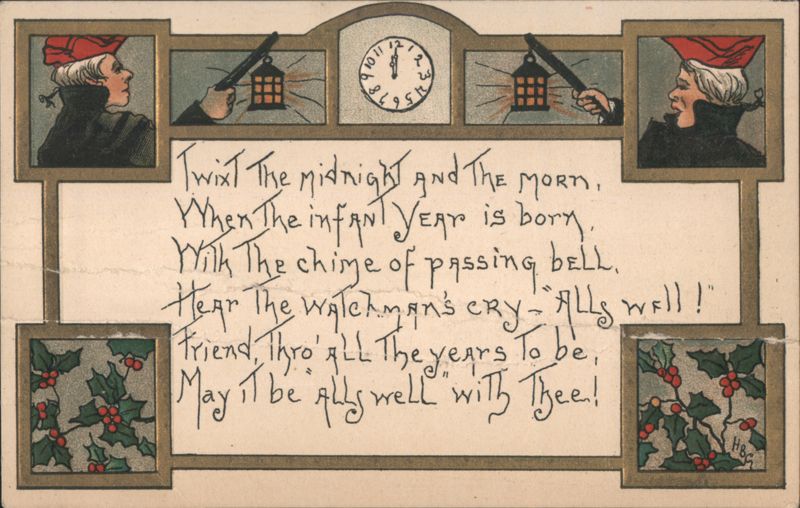 11 12 1
10 2
9 3
8 4
7 6 5
Twixt The midnight and The morn,
When The infant Year is born,
With The chime of passing bell,
Hear The watchman's cry - "Alls well!"
Friend, Thro' all The years To be,
May iT be "alls well" wiTh Thee!
HBG